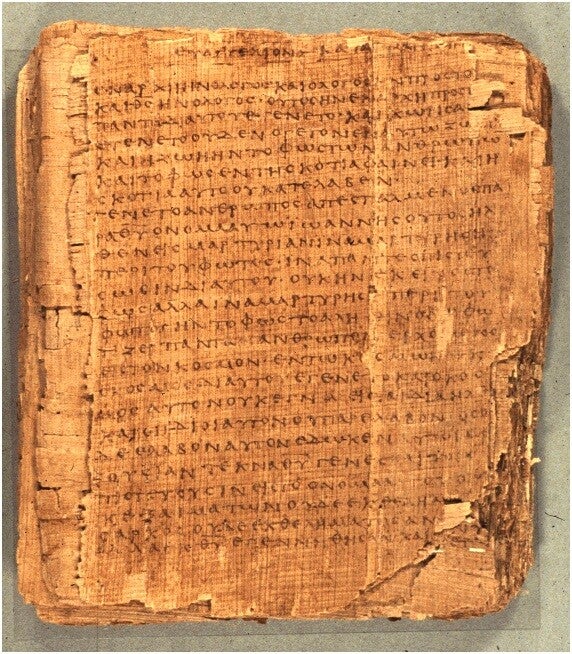 ΕΥΑΓΓΕΛΙΟΝ ΚΑΤΑ
ΕΝ ΑΡΧΗ ΗΝ Ο ΛΟΓΟΣ ΚΑΙ Ο ΛΟΓΟΣ ΗΝ ΠΡΟΣ ΤΟ
ΚΑΙ ΘΣ ΗΝ Ο ΛΟΓΟΣ · ΟΥΤΟΣ ΗΝ ΕΝ ΑΡΧΗ ΠΡΟΣ
ΠΑΝΤΑ ΔΙ ΑΥΤΟΥ ΕΓΕΝΕΤΟ · ΚΑΙ ΧΩΡΙΣ Α
ΕΓΕΝΕΤΟ ΟΥΔΕΝ Ο ΓΕΓΟΝΕΝ ΕΝ ΑΥΤΩ
ΚΑΙ Η ΖΩΗ ΗΝ ΤΟ ΦΩΣ ΤΩΝ ΑΝΘΡΩΠΩ
ΚΑΙ ΤΟ ΦΩΣ ΕΝ ΤΗ ΣΚΟΤΙΑ ΦΑΙΝΕΙ · ΚΑΙ Η
ΣΚΟΤΙΑ ΑΥΤΟ ΟΥ ΚΑΤΕΛΑΒΕΝ
ΕΓΕΝΕΤΟ ΑΝΘΡΩΠΟΣ ΑΠΕΣΤΑΛΜΕΝΟΣ ΠΑ
ΡΑ ΘΥ ΟΝΟΜΑ ΑΥΤΩ ΙΩΑΝΝΗΣ ΟΥΤΟΣ ΗΛ
ΘΕΝ ΕΙΣ ΜΑΡΤΥΡΙΑΝ ΙΝΑ ΜΑΡΤΥΡΗΣΗ
ΠΕΡΙ ΤΟΥ ΦΩΤΟΣ · ΙΝΑ ΠΑΝΤΕΣ ΠΙΣΤΕΥ
ΣΩΣΙΝ ΔΙ ΑΥΤΟΥ · ΟΥΚ ΗΝ ΕΚΕΙΝΟΣ ΤΟ
ΦΩΣ ΑΛΛΑ ΙΝΑ ΜΑΡΤΥΡΗΣΗ ΠΕΡΙ ΤΟΥ
ΦΩΤΟΣ ΗΝ ΤΟ ΦΩΣ ΤΟ ΑΛΗΘΙΝΟΝ Ο ΦΩ
ΤΙΖΕΙ ΠΑΝΤΑ ΑΝΘΡΩΠΟΝ ΕΡΧΟΜΕΝΟΝ
ΕΙΣ ΤΟΝ ΚΟΣΜΟΝ · ΕΝ ΤΩ ΚΟΣΜΩ ΗΝ
ΚΑΙ Ο ΚΟΣΜΟΣ ΔΙ ΑΥΤΟΥ ΕΓΕΝΕΤΟ ΚΑΙ Ο ΚΟ
ΣΜΟΣ ΑΥΤΟΝ ΟΥΚ ΕΓΝΩ ΕΙΣ ΤΑ ΙΔΙΑ ΗΛ
ΚΑΙ ΟΙ ΙΔΙΟΙ ΑΥΤΟΝ ΟΥ ΠΑΡΕΛΑΒΟΝ ΟΣΟΙ
ΔΕ ΕΛΑΒΟΝ ΑΥΤΟΝ ΕΔΩΚΕΝ ΑΥΤΟΙΣ Ε
ΞΟΥΣΙΑΝ ΤΕΚΝΑ ΘΥ ΓΕΝΕΣΘΑΙ ΤΟΙΣ
ΠΙΣΤΕΥΟΥΣΙΝ ΕΙΣ ΤΟ ΟΝΟΜΑ
ΑΙΜΑΤΩΝ ΟΥΔΕ ΕΚ ΘΕΛΗΜΑ
ΣΑΡΚΟΣ ΟΥΔΕ ΕΚ ΘΕΛΗΜΑΤΟΣ ΑΝ
ΑΛΛ ΕΚ ΘΥ ΕΓΕΝΝΗΘΗΣΑΝ ΚΑΙ